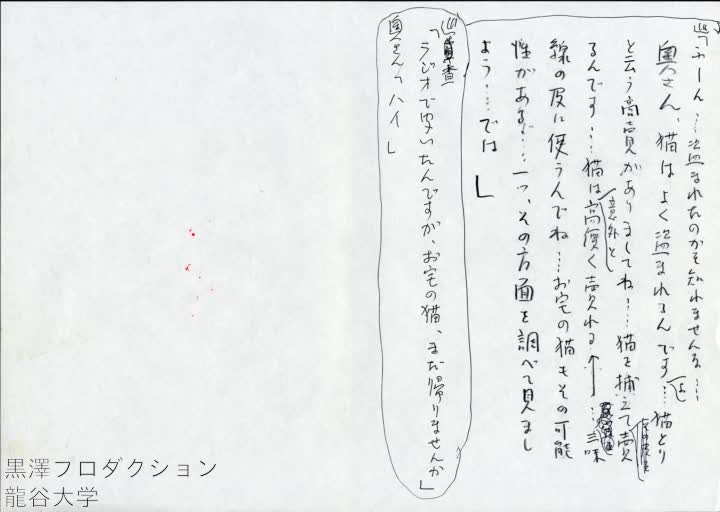 巡「ふーん…盗まれたのかも知れませんな…
奥さん、猫はよく盗まれるんですよ…猫とり
と云う商売がありましてね…猫を捕えて売
るんです…猫は意外と高価く売れる…三味
線の皮に使うんでね…お宅の猫もその可能
性がある…一つ、その方面を調べて見まし
よう…では」
巡査
「ラジオで聞いたんですが、お宅の猫、まだ帰りませんか」
奥さん「ハイ」
黒澤プロダクション
龍谷大学